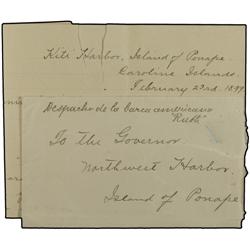 Kiti Harbor, Island of Ponape
Caroline Islands.
February 23rd 1899.
Despacho de la barca americano
"Ruth"
To the Governor
Northwest Harbor,
Island of Ponape